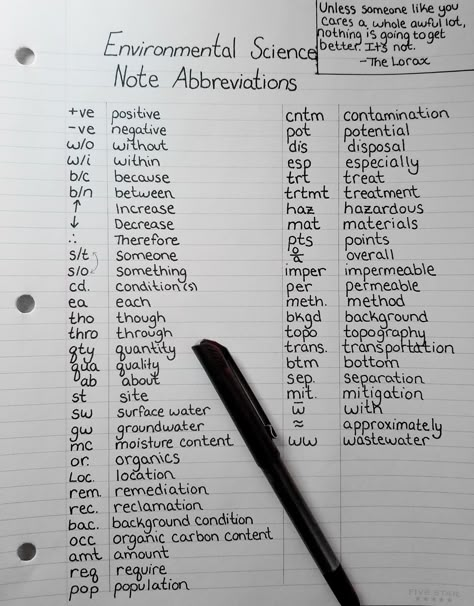 Unless someone like you
cares a whole awful lot,
nothing is going to get
better. It's not.
-The Lorax
Environmental Science
Note Abbreviations
+ve positive
-ve negative
w/o without
w/i within
b/c because
b/n between
↑ Increase
↓ Decrease
∴ Therefore
s/t someone
s/o something
cd. condition(s)
ea each
tho though
thro through
qty quantity
qua quality
ab about
st site
sw surface water
gw groundwater
mc moisture content
or. organics
Loc. location
rem. remediation
rec. reclamation
bac. background condition
occ organic carbon content
amt amount
req require
pop population
cntm contamination
pot potential
dis disposal
esp especially
trt treat
trtmt treatment
haz hazardous
mat materials
pts points
overall
imper impermeable
per permeable
meth. method
bkgd background
topo topography
trans. transportation
btm bottom
sep. separation
mit. mitigation
w̄ with
≈ approximately
ww wastewater
FIVE STAR
★★★★★